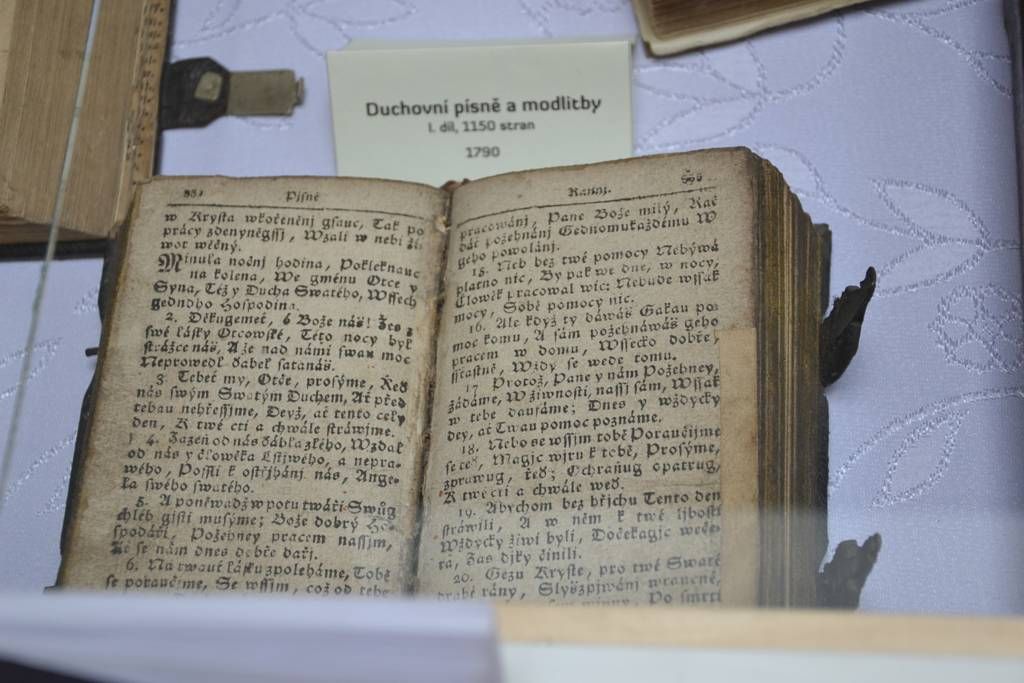 Duchovní písně a modlitby
I. díl, 1150 stran
1790
Pjsně
w Krysta wkořeněnj gsauc, Tak po
prácy zdenyněgssj, Wzali w nebi ži-
wot wěčný.
Minula nočnj hodina, Pokleknauc
na kolena, We gménu Otce y
Syna, Též y Ducha Swatého, Wssech
gednoho Hospodina.
2. Děkugemeť, ó Bože náš! Žes z
swé lásky Otcowské, Této nocy byl
strážce náš, A že nad námi swau moc
Neprowedl ďábel satanáš.
3. Tebeť my, Otče, prosýme, Řeď
nás swým Swatým Duchem, Ať před
tebau nehřessjme, Deyž, ať tento celý
den, K twé cti a chwále stráwjme.
4. Zažeň od nás ďábla zlého, Wzdal
od nás y člowěka Lstjwého, a nepra-
wého, Possli k ostřjhánj nás, Ange-
la swého swatého.
5. A poněwadž w potu twáři Swůg
chléb gjsti musýme; Bože dobrý Ho-
spodáři, Požehney pracem nassjm,
Ať se nám dnes dobře dařj.
6. Na twauť lásku zpoleháme, Tobě
se poraučjme, Se wssjm, což od tebe
Rannj.
pracowánj, Pane Bože milý, Rač
dáti požehnánj Gednomukaždému W
geho powolánj.
15. Neb bez twé pomocy Nebýwá
platno nic, By pak we dne, w nocy,
Člowěk pracowal wjc: Nebude wssak
mocy, Sobě pomocy nic.
16. Ale když ty dáwáš Gakau po-
moc komu, A sám požehnáwáš geho
pracem w domu, Wssecko dobře,
ssťastně, Wždy se wede tomu.
17. Protož, Pane y nám Požehney,
žádáme, W žiwnosti nassj sám, Wssak
w tebe daufáme; Dnes y wždycky
dey, ať Twau pomoc poznáme.
18. Nebo se wssjm tobě Poraučjme
se teď, Magjc wjru k tobě, Prosýme,
zprawug, řeď; Ochraňug opatrug,
K twé cti a chwále weď.
19. Abychom bez hřjchu Tento den
stráwili, A w něm k twé ljbosti
Wždycky žiwi byli, Dočekagjc weče-
ra, Zas djky činili.
20. Gezu Kryste, pro twé Swaté
drahé rány, Slyšzpjwánj wraucné,
winny, Po smrti